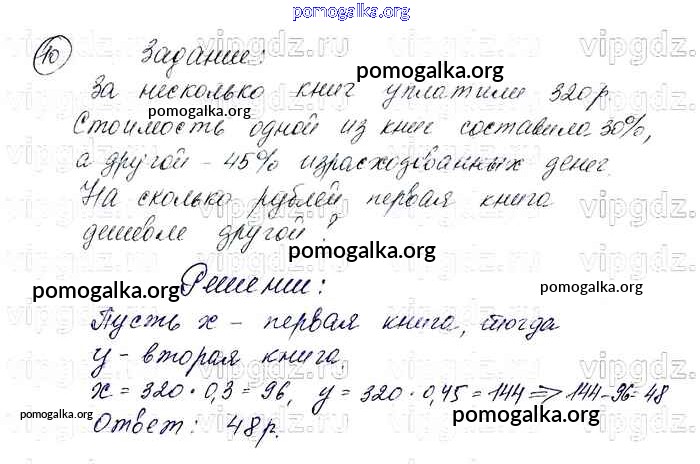 pomogalka.org
10 Задание:
pomogalka.org
За несколько книг уплатили 320р.
pomogalka.org
Стоимость одной из книг составила 30%,
а другой - 45% израсходованных денег.
На сколько рублей первая книга
дешевле другой?
pomogalka.org
Решение:
pomogalka.org
pomogalka.org
Пусть х - первая книга, тогда
у - вторая книга.
х = 320 · 0,3 = 96, у = 320 · 0,45 = 144 => 144-96=48
pomogalka.org
pomogalka.org
Ответ: 48р.
pomogalka.org
vipgdz.ru